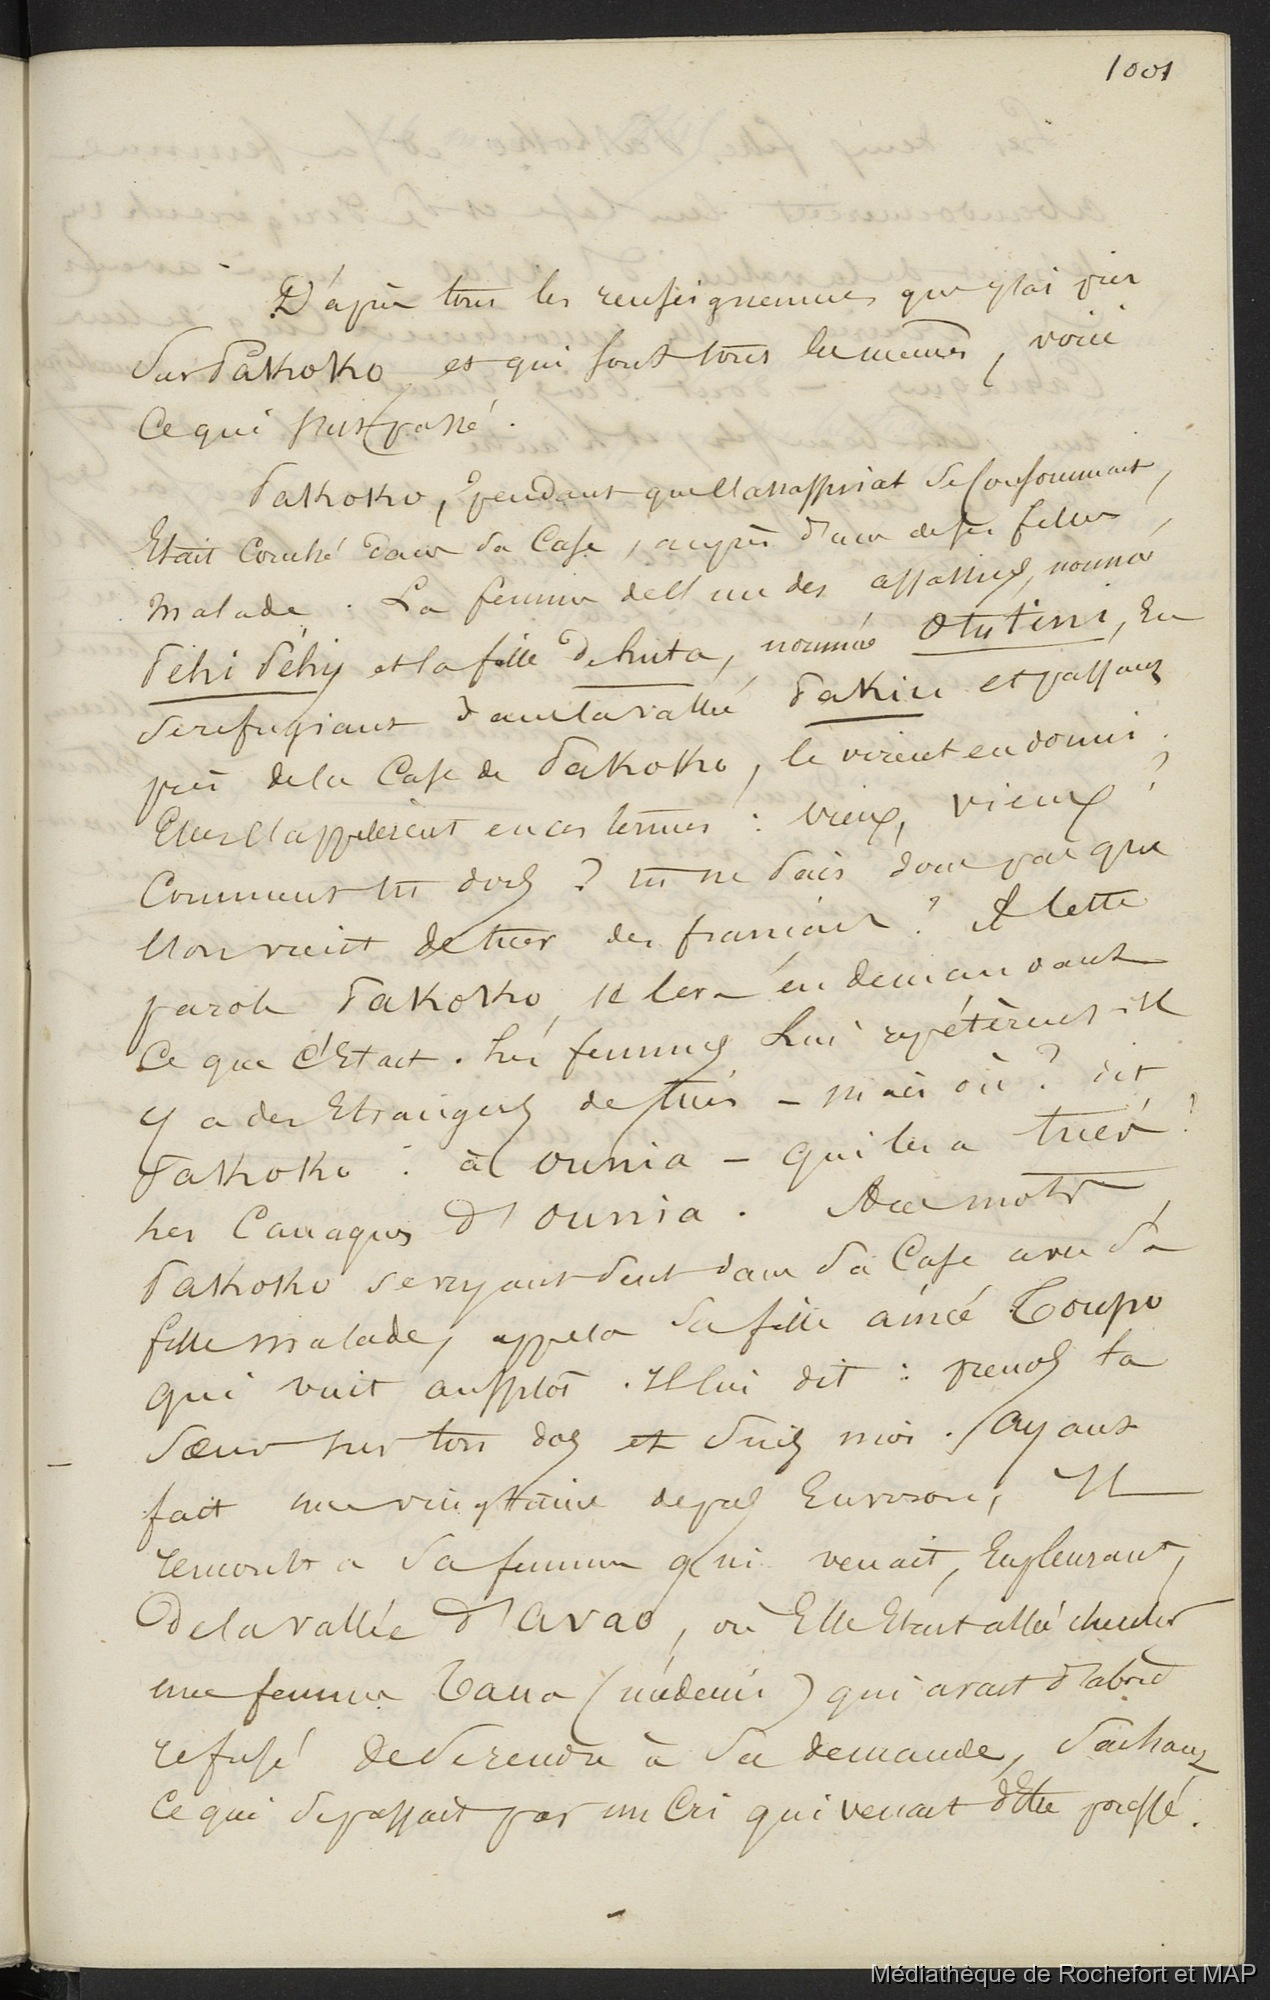 1001
D'après tous les renseignemens que j'ai pris
Sur Pakoko et qui sont tous les memes, voici
Ce qui s'est passé.
Pakoko, pendant que l'assassinat se consommait,
Etait Couché dans sa Case, auprès d'une de ses filles
malade. La femme de l'un des assassins, nommée
Péhi Péhy et la fille de huta, nommée Otutini, En
se refugiant dans la vallée Pakiu et passant
près de la Case de Pakoko, le virent endormi.
Elles l'appelèrent en ces termes : vieux, vieux ?
Comment tu dors ? tu ne sais donc pas que
l'on vient de tuer des français ? A cette
parole Pakoko, se leva en demandant
Ce que c'Etait. Les femmes Lui repétèrent - il
y a des Etrangers de tués - mais où ? dit
Pakoko : à ounia - qui les a tués ?
les Canaques d'ounia. A ce mots,
Pakoko se voyant seul dans sa Case avec sa
fille malade, appela sa fille ainée Toupo
qui vint aussitot. Il lui dit : prends ta
Sœur sur ton dos et suis moi. Ayant
fait une vingtaine de pas Environ, Il
rencontra sa femme qui venait, En pleurant,
de la vallée d'avao, où Elle Etait allée chercher
une femme Taua (médecin) qui avait d'abord
refusé de se rendre à sa demande, sachant
Ce qui se passait par un Cri qui venait d'Etre poussé.
Médiathèque de Rochefort et MAP